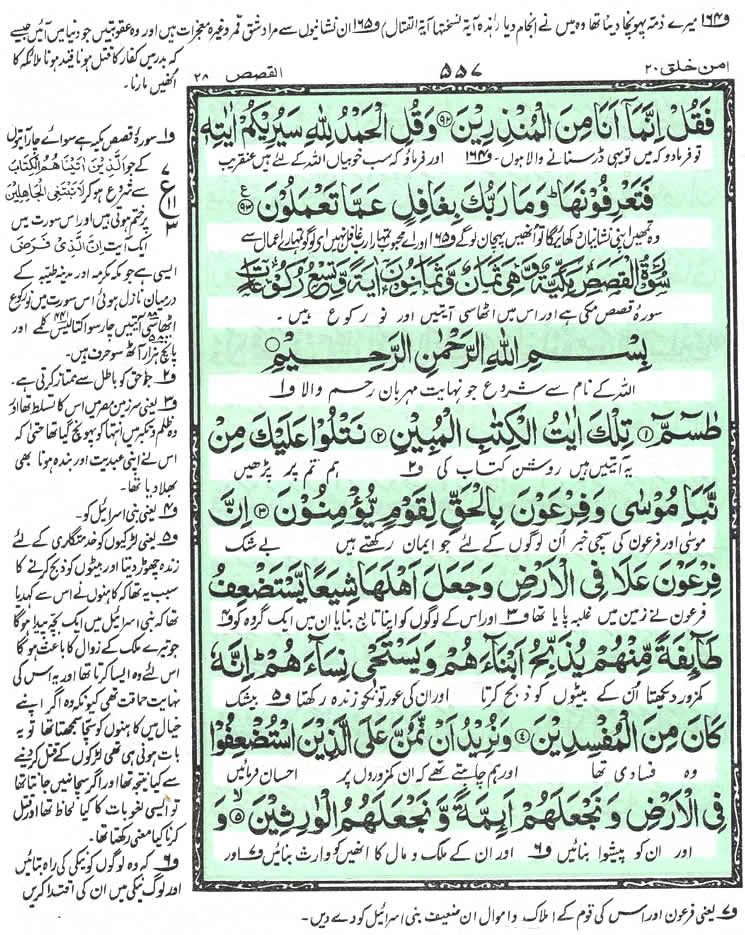 ف۱۶۴ میرے ذمّہ پہونچا دینا تھا وہ میں نے انجام دیا (ہٰذہ آیۃ نسختہا آیۃ القتال) ف۱۶۵ ان نشانیوں سے مراد شق قمر وغیرہ معجزات ہیں اور وہ عقوبتیں جو دنیا میں آئیں جیسے
کہ بدر میں کفار کا قتل ہونا قید ہونا ملائکہ کا
انھیں مارنا۔
امن خلق ۲۰
۵۵۷
القصص ۲۸
فَقُلْ اِنَّمَاۤ اَنَا مِنَ الْمُنْذِرِیْنَ ۝۹۲ وَقُلِ الْحَمْدُ لِلّٰهِ سَیُرِیْكُمْ اٰیٰتِهٖ
تو فرما دو کہ میں تو یہی ڈر سنانے والا ہوں۔ ف۱۶۴ اور فرماؤ کہ سب خوبیاں اللہ کے لئے ہیں عنقریب
فَتَعْرِفُوْنَهَا ؕ وَمَا رَبُّكَ بِغَافِلٍ عَمَّا تَعْمَلُوْنَ ۝۹۳
وہ تمھیں اپنی نشانیاں دکھائے گا تو انھیں پہچان لو گے ف۱۶۵ اور اے محبوب تمہارا رب غافل نہیں اے لوگو تمہارے اعمال سے
سُوْرَةُ الْقَصَصِ مَكِّیَّةٌ وَّهِیَ ثَمَانٌ وَّثَمَانُوْنَ اٰیَةً وَّتِسْعُ رُكُوْعَاتٍ
سورۂ قصص مکی ہے اور اس میں اٹھاسی آیتیں اور نو رکوع ہیں۔
بِسْمِ اللّٰهِ الرَّحْمٰنِ الرَّحِیْمِ ۝
اللہ کے نام سے شروع جو نہایت مہربان رحم والا ف۱
طٰسٓمّٓ ۝۱ تِلْكَ اٰیٰتُ الْكِتٰبِ الْمُبِیْنِ ۝۲ نَتْلُوْا عَلَیْكَ مِنْ
یہ آیتیں ہیں روشن کتاب کی ف۲ ہم تم پر پڑھیں
نَّبَاِ مُوْسٰی وَفِرْعَوْنَ بِالْحَقِّ لِقَوْمٍ یُّؤْمِنُوْنَ ۝۳ اِنَّ
موسٰی اور فرعون کی سچی خبر اُن لوگوں کے لئے جو ایمان رکھتے ہیں بے شک
فِرْعَوْنَ عَلَا فِی الْاَرْضِ وَجَعَلَ اَهْلَهَا شِیَعًا یَّسْتَضْعِفُ
فرعون نے زمین میں غلبہ پایا تھا ف۳ اور اس کے لوگوں کو اپنا تابع بنایا ان میں ایک گروہ کو ف۴
طَآىِٕفَةً مِّنْهُمْ یُذَبِّحُ اَبْنَآءَهُمْ وَیَسْتَحْیٖ نِسَآءَهُمْ ؕ اِنَّهٗ
کمزور دیکھتا اُن کے بیٹوں کو ذبح کرتا اور ان کی عورتوں کو زندہ رکھتا ف۵ بیشک
كَانَ مِنَ الْمُفْسِدِیْنَ ۝۴ وَنُرِیْدُ اَنْ نَّمُنَّ عَلَی الَّذِیْنَ اسْتُضْعِفُوْا
وہ فسادی تھا اور ہم چاہتے تھے کہ ان کمزوروں پر احسان فرمائیں
فِی الْاَرْضِ وَنَجْعَلَهُمْ اَىِٕمَّةً وَّنَجْعَلَهُمُ الْوٰرِثِیْنَ ۝۵ وَ
اور ان کو پیشوا بنائیں ف۶ اور ان کے ملک و مال کا انھیں کو وارث بنائیں ف۷ اور
ف۱ سورۂ قصص مکیہ ہے سوائے چار آیتوں
کے جو اَلَّذِیْنَ اٰتَیْنٰهُمُ الْكِتَابَ
سے شروع ہو کر لَا نَبْتَغِی الْجَاهِلِیْنَ
پر ختم ہوتی ہیں اور اس سورت میں
ایک آیت اِنَّ الَّذِیْ فَرَضَ
ایسی ہے جو مکہ مکرمہ اور مدینہ طیبہ کے
درمیان نازل ہوئی اس سورت میں نو رکوع
اٹھاسی آیتیں چار سو اکتالیس کلمے اور
پانچ ہزار آٹھ سو حرف ہیں۔
ف۲ جو حق کو باطل سے ممتاز کرتی ہے۔
ف۳ یعنی سرزمین مصر میں اس کا تسلط تھا اور
وہ ظلم و تکبر میں انتہا کو پہونچ گیا تھا حتٰی کہ
اس نے اپنی عبدیت اور بندہ ہونا بھی
بھلا دیا تھا۔
ف۴ یعنی بنی اسرائیل کو۔
ف۵ یعنی لڑکیوں کو خدمتگاری کے لئے
زندہ چھوڑ دیتا اور بیٹوں کو ذبح کرنے کا
سبب یہ تھا کہ کاہنوں نے اس سے کہدیا
تھا کہ بنی اسرائیل میں ایک بچہ پیدا ہوگا
جو تیرے ملک کے زوال کا باعث ہوگا
اس لئے وہ ایسا کرتا تھا اور یہ اس کی
نہایت حماقت تھی کیونکہ وہ اگر اپنے
خیال میں کاہنوں کو سچا سمجھتا تھا تو یہ
بات ہونی ہی تھی لڑکوں کے قتل کر دینے
سے کیا نتیجہ تھا اور اگر سچا نہیں جانتا تھا
تو ایسی لغو بات کا کیا لحاظ تھا اور قتل
کرنا کیا معنی رکھتا تھا۔
ف۶ کہ وہ لوگوں کو نیکی کی راہ بتائیں
اور لوگ نیکی میں ان کی اقتدا کریں
ع
۷
۱۱
۳
ف۷ یعنی فرعون اور اس کی قوم کے املاک و اموال ان ضعیف بنی اسرائیل کو دے دیں۔